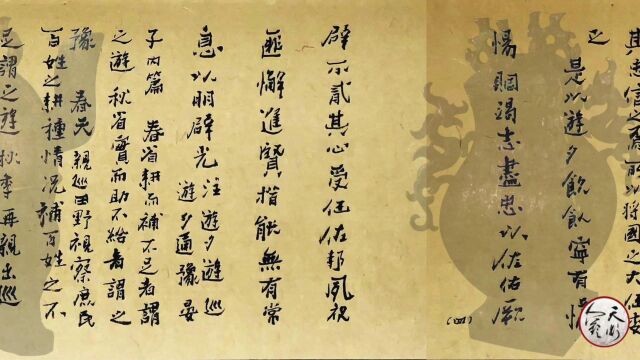 其忠信之為所以将國之大任委
之
是以遊夕飲飤寧有
惕賙竭志盡忠以佐佑厥
(四)
辟不貳其心受任佐邦夙
匪懈進賢措能無有常
息以明辟光 注 遊夕 遊巡
遊夕通豫宴
子内篇 春省耕而補不足者謂
之遊 秋省實而助不給者謂之
豫 春天 親巡田野視察庶民
百姓之耕種情況補百姓之不
足謂之遊秋季再親出巡